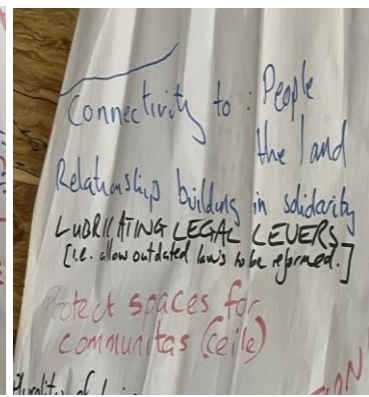 Connectivity to : People
the land
Relationship building in solidarity
LUBRICATING LEGAL LEVERS
[i.e. allow outdated laws to be reformed.]
Protect spaces for
communitas (ceile)
Plurality of